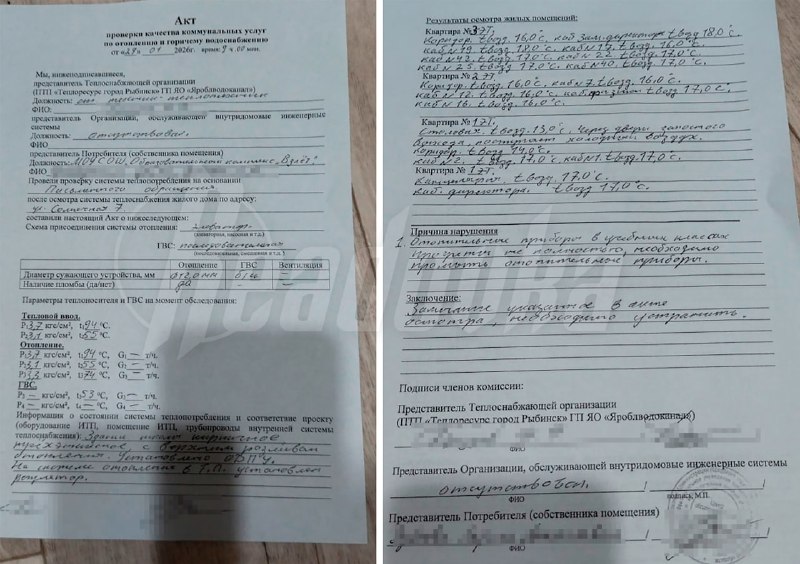 Акт
проверки качества коммунальных услуг
по отоплению и горячему водоснабжению
от «29» 01 2026г. время: 9 ч 00 мин.
Мы, нижеподписавшиеся,
представитель Теплоснабжающей организации
(ПТП «Теплоресурс город Рыбинск» ГП ЯО «Яроблводоканал»)
Должность: техник-теплотехник
ФИО:
представитель Организации, обслуживающей внутридомовые инженерные
системы
Должность: отсутствовал.
ФИО
представитель Потребителя (собственника помещения)
Должность: МОУ СОШ, Образовательный комплекс "Взлёт".
ФИО
Провели проверку системы теплопотребления на основании
Письменного обращения
после осмотра системы теплоснабжения жилого дома по адресу:
ул. 7.
составили настоящий Акт о нижеследующем:
Схема присоединения системы отопления: элеватор
(элеваторная, насосная и т.д.)
ГВС: последовательная
(последовательная, смешанная и т.д.)
Отопление ГВС Вентиляция
Диаметр сужающего устройства, мм —
Наличие пломбы (да/нет) да — —
Параметры теплоносителя и ГВС на момент обследования:
Тепловой ввод.
P₁ 3,7 кгс/см², t₁ 94 °С,
P₂ 3,1 кгс/см², t₂ 55 °С.
Отопление.
P₁ 3,7 кгс/см², t₁ 94 °С, G₁ — т/ч.
P₂ 3,1 кгс/см², t₂ 55 °С, G₂ — т/ч.
P₃ 3,3 кгс/см², t₃ 74 °С, G₃ — т/ч.
ГВС:
P₃ — кгс/см², t₃ 53 °С, G₃ — т/ч.
P₄ — кгс/см², t₄ — °С, G₄ — т/ч.
Информация о состоянии системы теплопотребления и соответствие проекту
(оборудование ИТП, помещение ИТП, трубопроводы внутренней системы
теплоснабжения): Здание школы кирпичное
с верхним розливом
отопления. Установлено ОДПУ.
На системе отопления в Т.П. установлен
регулятор.
Результаты осмотра жилых помещений:
Квартира № 3эт.
Коридор. t возд. 16,0°с, каб зам.директора t возд 18,0°с.
каб N 19. t возд. 18,0°с, каб N 17. t возд. 16,0°с
каб N 42. t возд. 17,0°с, каб N 22. t возд.
каб N 25. t возд. 17,0°с, каб N 40. t возд. 17,0°с.
Квартира № 2эт.
Коридор. t возд. 16,0°с, каб N 7. t возд. 16,0°с.
каб N 12. t возд. 16,0°с, каб.физики t возд 17,0°с.
каб N 16. t возд. 16,0°с.
Квартира № 1эт.
Столовая. t возд. 13,0°с, через двери запасного
выхода, поступает холодный воздух.
Коридор. t возд. 14,0°с.
каб N 2. t возд. 17,0°с, каб N 1. t возд. 17,0°с.
Квартира № 1эт.
Канцелярия t возд. 17,0°с.
каб. директора. t возд 17,0°с.
Причина нарушения
1. Отопительные приборы в учебных классах
прогреты не полностью, необходимо
промыть отопительные приборы.
Заключение:
Замечания указанные в акте
осмотра, необходимо устранить.
Подписи членов комиссии:
Представитель Теплоснабжающей организации
(ПТП «Теплоресурс город Рыбинск» ГП ЯО «Яроблводоканал»)
ФИО
Представитель Организации, обслуживающей внутридомовые инженерные системы
отсутствовал.
ФИО
подпись, М.П.
Представитель Потребителя (собственника помещения)
ФИО